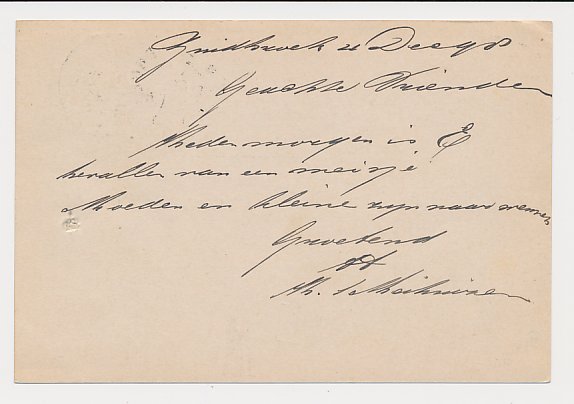 Zuidhoek 21 Dec 98
Geachte Vrienden
Hedenmorgen is E
bevallen van een meisje
Moeder en kleine zijn naar wensch
Groetend
Th.